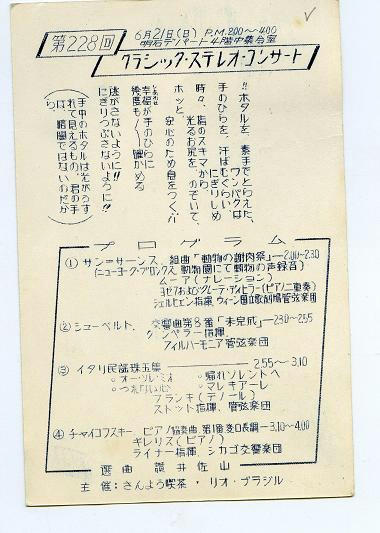 第228回
6月21日(日) P.M.2.00〜4.00
明石デパート4階中集会室
クラシック・ステレオ・コンサート
!!ホタルを、素手でとらえた、
ワンパクは、
手のひらを、汗ばむぐらい
にぎりしめ
時々、指のスキマから
光るお尻を、のぞいて、
ホッと、
安心のため息をつく!!
幸福が手のひらに
幾度も 確かめる
逃がさないように!!
にぎりつぶさないように!!
手中のホタルは光がうす
れて見えるもの、君の手
は、暗闇ではないのだか
ら、
プログラム
① サン=サーンス、組曲「動物の謝肉祭」—2.00〜2.30
(ニューヨーク・ブロンクス動物園にて動物の声録音)
ムーア(ナレーション)
ヨゼフおよびグレーテ・ディヒラー(ピアノ二重奏)
シェルヘェン指揮、ウィーン国立歌劇場管弦楽団
② シューベルト、交響曲第8番「未完成」—2.30〜2.55
クレンペラー指揮
フィルハーモニア管弦楽団
③ イタリ民謡珠玉集 2.55〜3.10
○オー・ソレ・ミオ ○帰れソレントへ
○つれない心 ○マレキアーレ
フランキ(テノール)
ストット指揮、管弦楽団
④ チャイコフスキー、ピアノ協奏曲、第1番変ロ長調—3.10〜4.00
ギレリス(ピアノ)
ライナー指揮、シカゴ交響楽団
選曲 讃井佐山
主催:さんよう喫茶・リオ・ブラジル